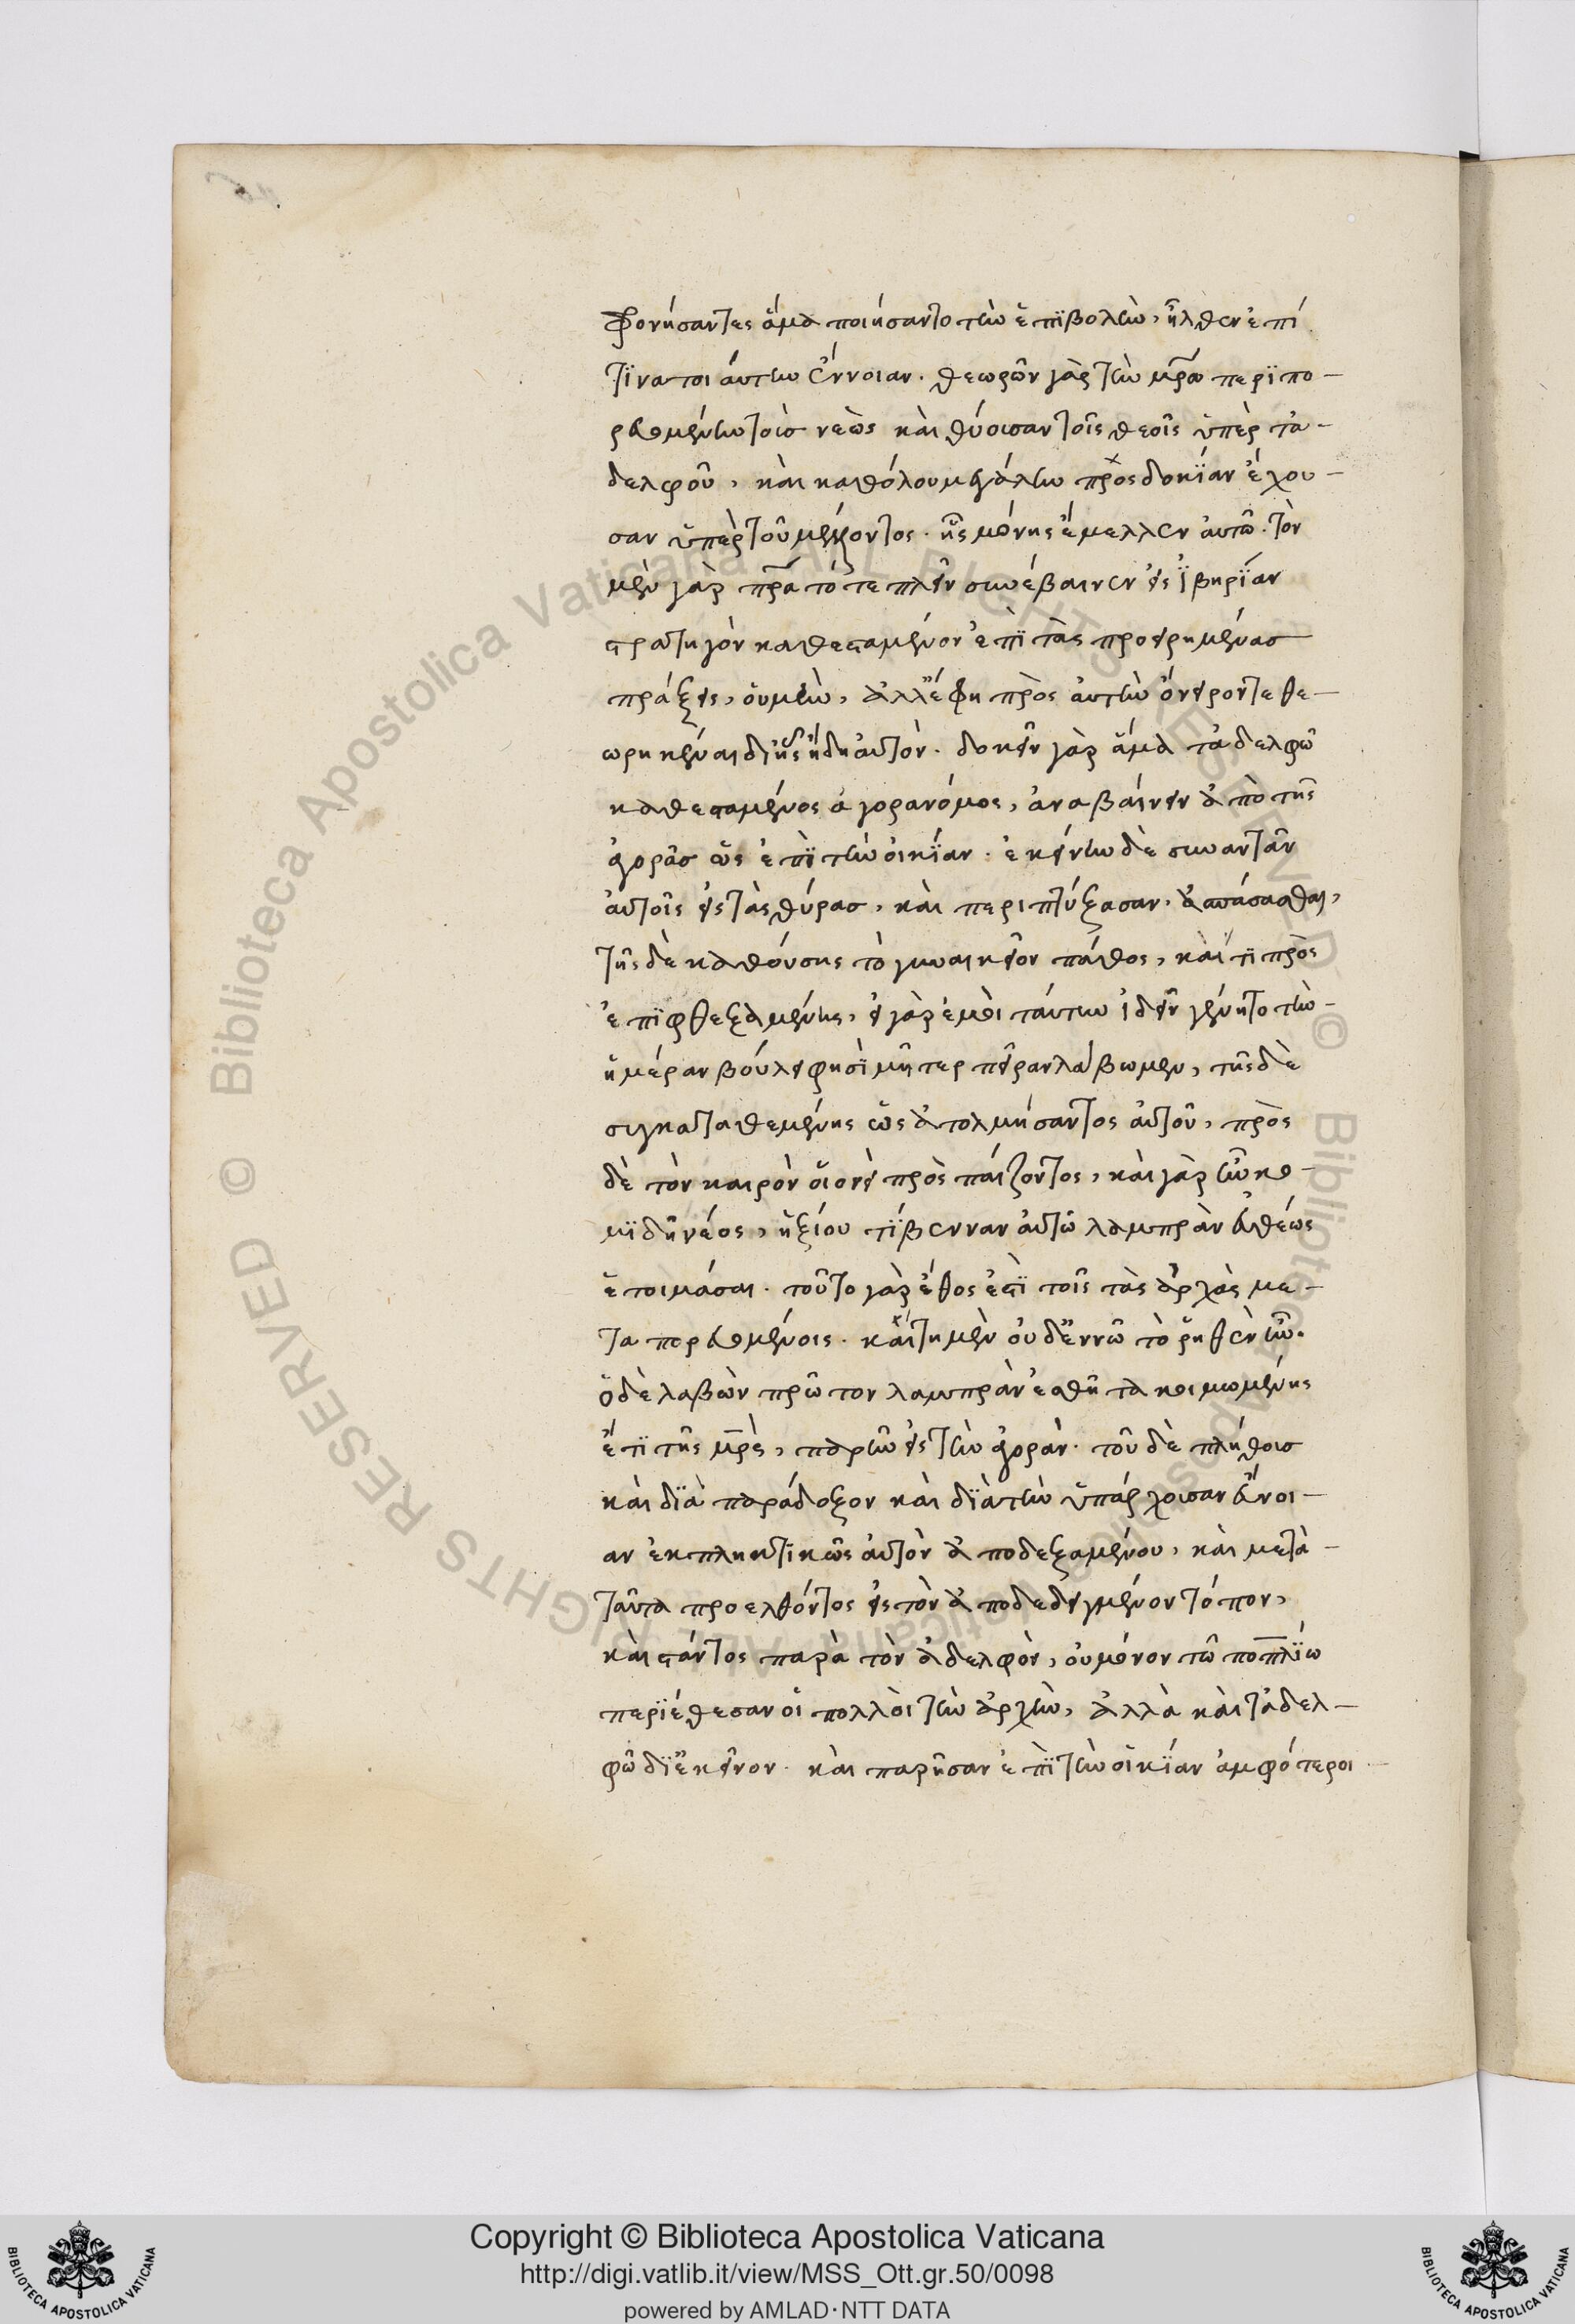 φρονήσαντες ἅμα ποιήσαντο τὴν ἐπιβολὴν, ἦλθεν ἐπί
τινα τοιάυτην ἔννοιαν. θεωρῶν γὰρ τὴν μρα περιπο-
ρευομένην τοὺσ νεὼς καὶ θύουσαν τοῖς θεοῖς ὑπὲρ τα-
δελφοῦ, καὶ καθόλου μεγάλην προσδοκίαν ἔχου-
σαν ὑπὲρ τοῦ μέλλοντος. ἧς μόνης ἔμελλεν ἀυτῶ. τὸν
μὲν γὰρ πρα τότε πλεῖν συνέβαινεν εἰς ἰβηρίαν
στρατηγὸν καθεσταμένον ἐπὶ τὰς προειρημένασ
πράξεις, ὀυμὴν, ἀλλ' ἔφη πρὸς ἀυτὴν ὄνειρον τεθε-
ωρηκέναι δὶς ἤδη ἀυτὸν. δοκεῖν γὰρ ἅμα τἀδελφῶ
καθεσταμένος ἀγορανόμος, ἀναβαίνειν ἀπὸ τῆς
ἀγορᾶσ ὡς ἐπὶ τὴν ὀικίαν. ἐκείνην δὲ συναντᾶν
ἀυτοῖς εἰς τὰς θύρασ, καὶ περιπτύξασαν, ἀσπάσασθαι,
τῆς δὲ παθούσης τὸ γυναικεῖον πάθος, καί τι προσ
επιφθεγξαμένης, εἰ γὰρ ἐμοὶ τάυτην ἰδεῖν γένητο τὴν
ἡμέραν βούλει φησὶ μῆτερ πεῖραν λάβωμεν, τῆς δὲ
συγκαταθεμένης ὡς ἀ τολμήσαντος ἀυτοῦ, πρὸς
δὲ τὸν καιρὸν οἱονεὶ πρὸς πάιζοντος, καὶ γὰρ ἦν κο-
μιδῆ νέος, ἠξίου τίβενναν ἀυτῶ λαμπρὰν ἐυθέως
ἑτοιμάσαι. τοῦτο γὰρ ἔθος ἐστὶ τοῖς τὰς ἀρχὰς με-
ταπορευομένοις. καὶ τῆ μὲν ὀυδ' ἐν νῶ τὸ ῥηθὲν ἦν.
ὁ δὲ λαβὼν πρῶτον λαμπρὰν ἐσθῆτα κοιμωμένης
ἔτι τῆς μρὸς, παρῆν εἰς τὴν ἀγορὰν. τοῦ δὲ πλήθουσ
καὶ διὰ παράδοξον καὶ διὰ τὴν ὑπάρχουσαν ἔυνοι-
αν ἐκπληκτικῶς ἀυτὸν ἀποδεξαμένου, καὶ μετὰ
ταῦτα προελθόντος εἰς τὸν ἀποδεδειγμένον τόπον,
καὶ στάντος παρὰ τὸν ἀδελφὸν, ὀυ μόνον τῶ ποπλίω
περιέθεσαν ὁι πολλὸι τὴν ἀρχὴν, ἀλλὰ καὶ τἀδελ-
φῶ δι' ἐκεῖνον. καὶ παρῆσαν ἐπὶ τὴν ὀικίαν ἀμφότεροι
Copyright © Biblioteca Apostolica Vaticana
http://digi.vatlib.it/view/MSS_Ott.gr.50/0098
powered by AMLAD·NTT DATA